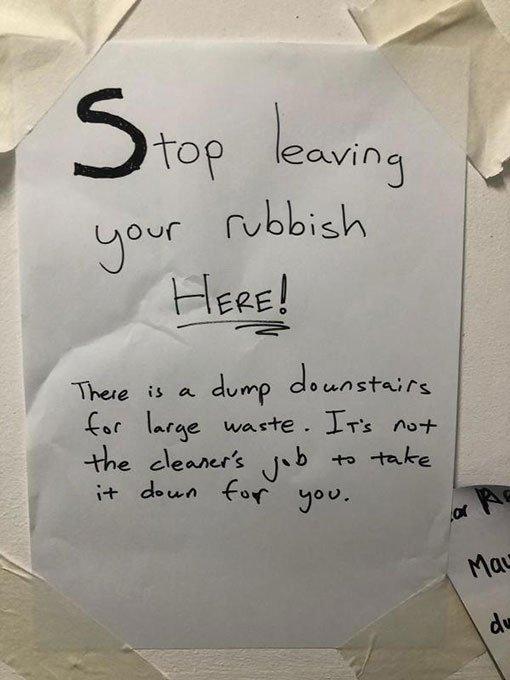 Stop leaving
your rubbish
HERE!
There is a dump downstairs
for large waste. It's not
the cleaner's job to take
it down for you.